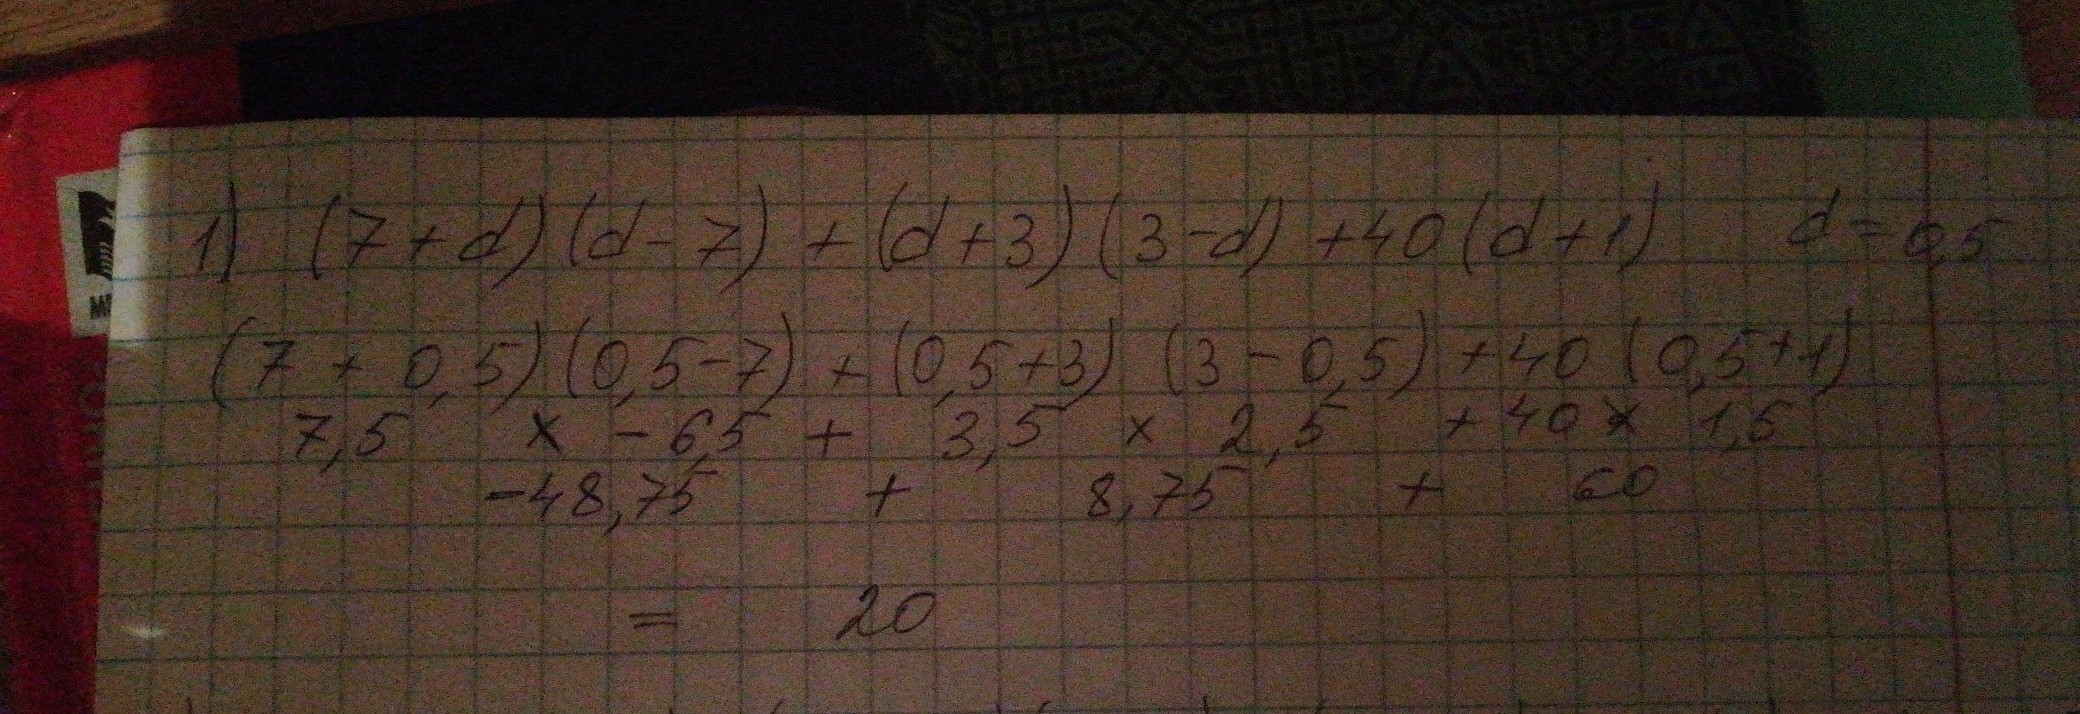 1) (7+d)(d-7)+(d+3)(3-d)+40(d+1) d=0,5
(7+0,5)(0,5-7)+(0,5+3)(3-0,5)+40(0,5+1)
7,5 x -6,5 + 3,5 x 2,5 +40 x 1,5
-48,75 + 8,75 + 60
= 20